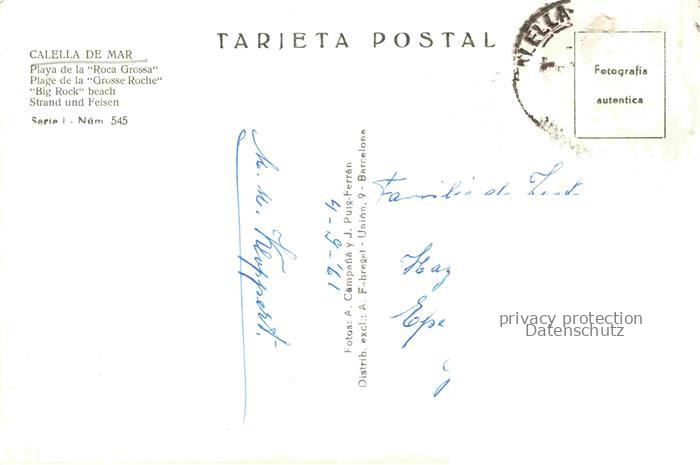 TARJETA POSTAL
CALELLA DE MAR
Playa de la "Roca Grossa"
Plage de la "Grosse Roche"
"Big Rock" beach
Strand und Felsen
Serie I - Núm. 545
CALELLA
Fotografia
autentica
Fotos: A. Campañá y J. Puig-Ferrán
Distrib. excl.: A. Fabregat - Unión, 9 - Barcelona
4-9-61
privacy protection
Datenschutz